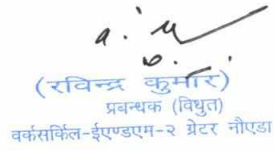 (रविन्द्र कुमार)
प्रबन्धक (विधुत)
वर्कसर्किल-ईएण्डएम-२ ग्रेटर नौएडा